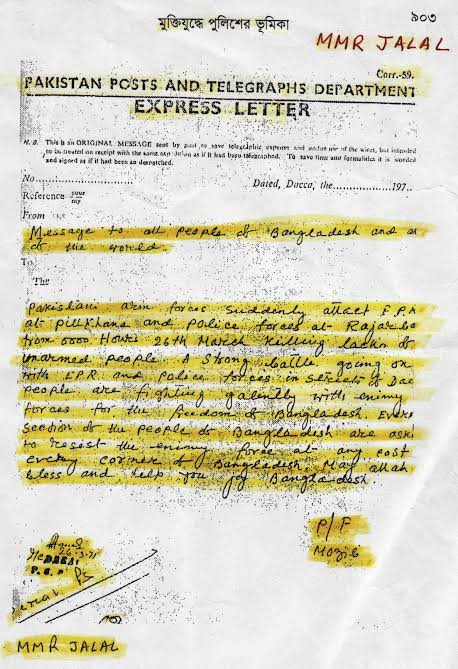 মুক্তিযুদ্ধে পুলিশের ভূমিকা
৯০৩
MMR JALAL
Corr.-59.
PAKISTAN POSTS AND TELEGRAPHS DEPARTMENT
EXPRESS LETTER
N. B. This is an ORIGINAL MESSAGE sent by post to save telegraphic expense and undue use of the wires, but intended
to be treated on receipt with the same expedition as if it had been telegraphed. To save time and formalities it is worded
and signed as if it had been so despatched.
No.
Dated, Dacca, the 197
Reference your
my
From
Message to all people of Bangladesh and
of the world.
To
The
Pakistani arm forces suddenly attact E.P.R
at Pilkhana and Police forces at
from 0000 Hours 26th March killing lacks of
unarmed people. A strong battle going on
with EPR and Police forces in
people are fighting with enemy
forces for the freedom of Bangladesh. Every
section of the people of Bangladesh are
to resist the enemy force at any cost
every corner of Bangladesh. May allah
bless and help you Joy Bangladesh
Mozib
26-3-71
MMR JALAL